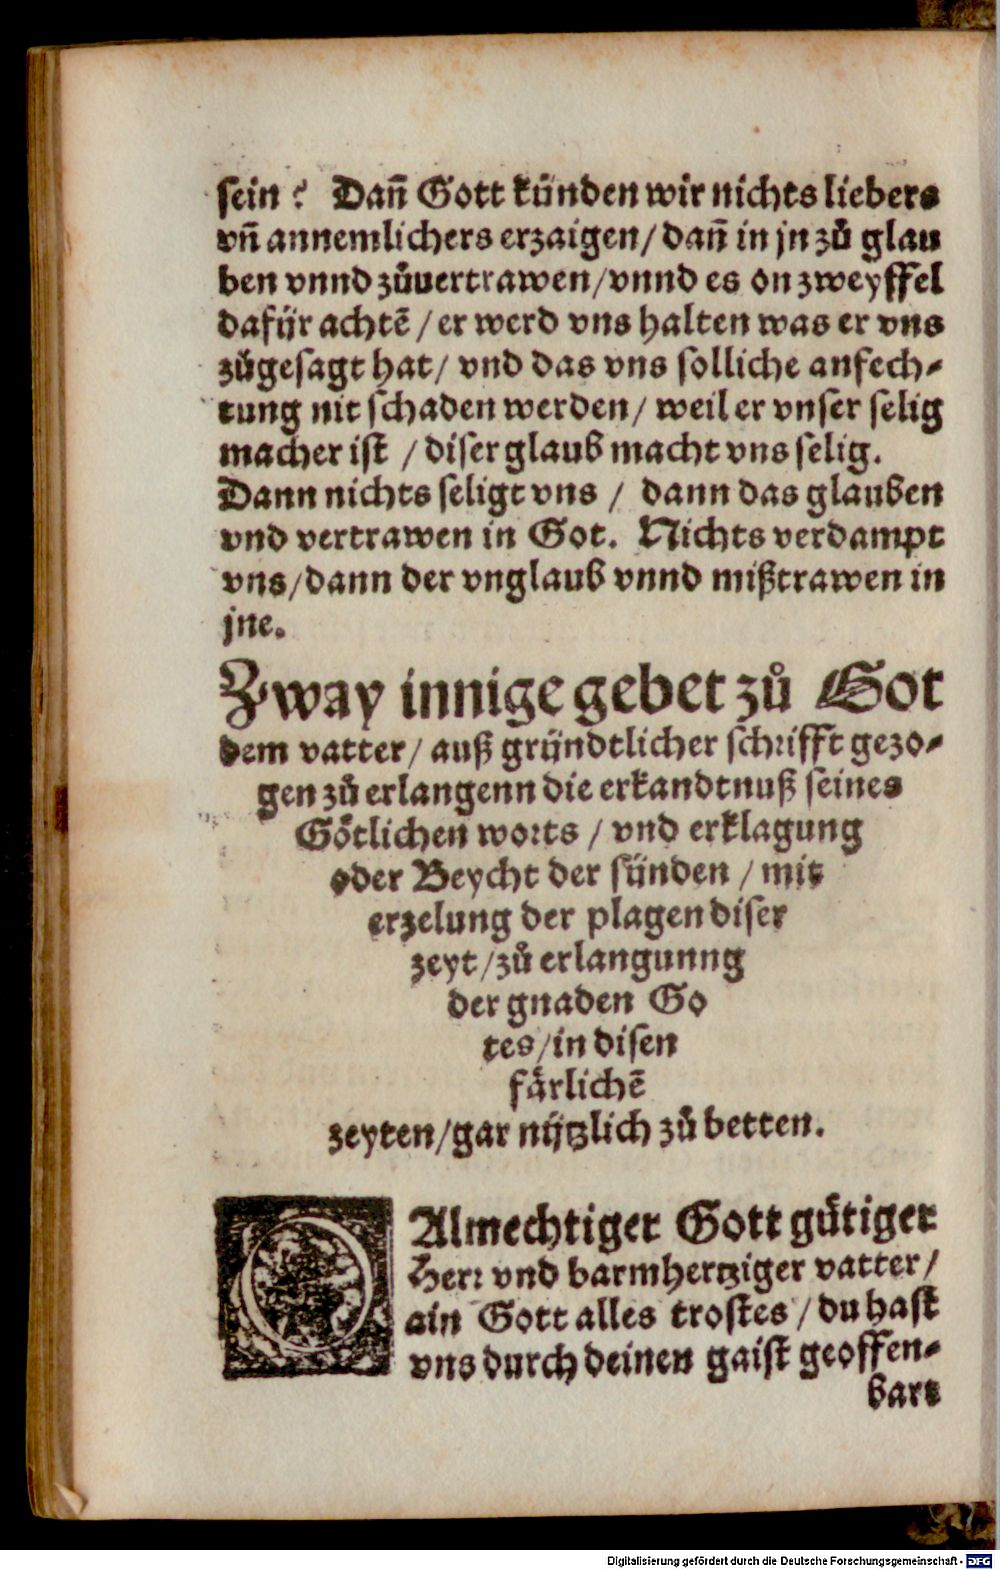 sein? Dañ Gott künden wir nichts liebers
vñ annemlichers erzaigen/ dañ in jn zů glau
ben vnnd zůuertrawen/vnnd es on zweyffel
dafür achtẽ / er werd vns halten was er vns
zůgesagt hat/ vnd das vns solliche anfech⸗
tung nit schaden werden/ weil er vnser selig
macher ist / diser glaub macht vns selig.
Dann nichts seligt vns / dann das glauben
vnd vertrawen in Got. Nichts verdampt
vns/dann der vnglaub vnnd mißtrawen in
jne.
Zway innige gebet zů Got
dem vatter/ auß gründtlicher schrifft gezo⸗
gen zů erlangenn die erkandtnuß seines
Götlichen worts / vnd erklagung
oder Beycht der sünden / mit
erzelung der plagen diser
zeyt/zů erlangunng
der gnaden Go
tes/in disen
färlichẽ
zeyten/gar nützlich zů betten.
O Almechtiger Gott gütiger
Herr vnd barmhertziger vatter/
ain Gott alles trostes / du hast
vns durch deinen gaist geoffen⸗
bart
Digitalisierung gefördert durch die Deutsche Forschungsgemeinschaft - DFG